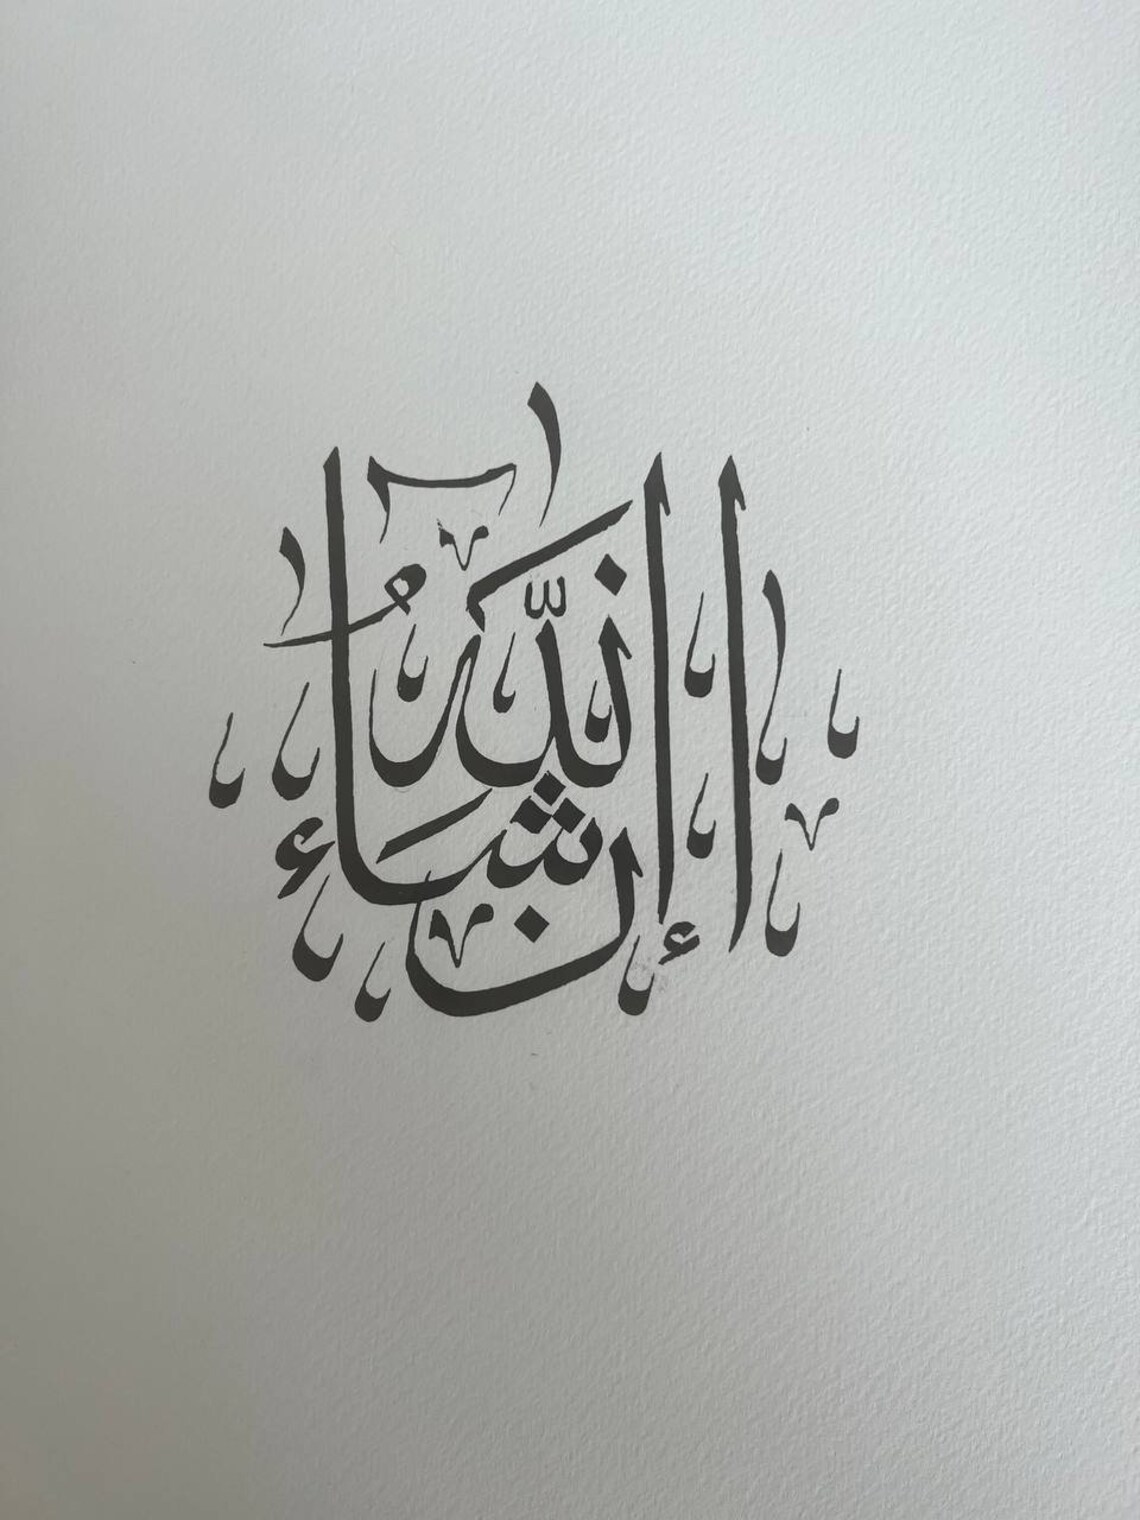 إن شاء الله